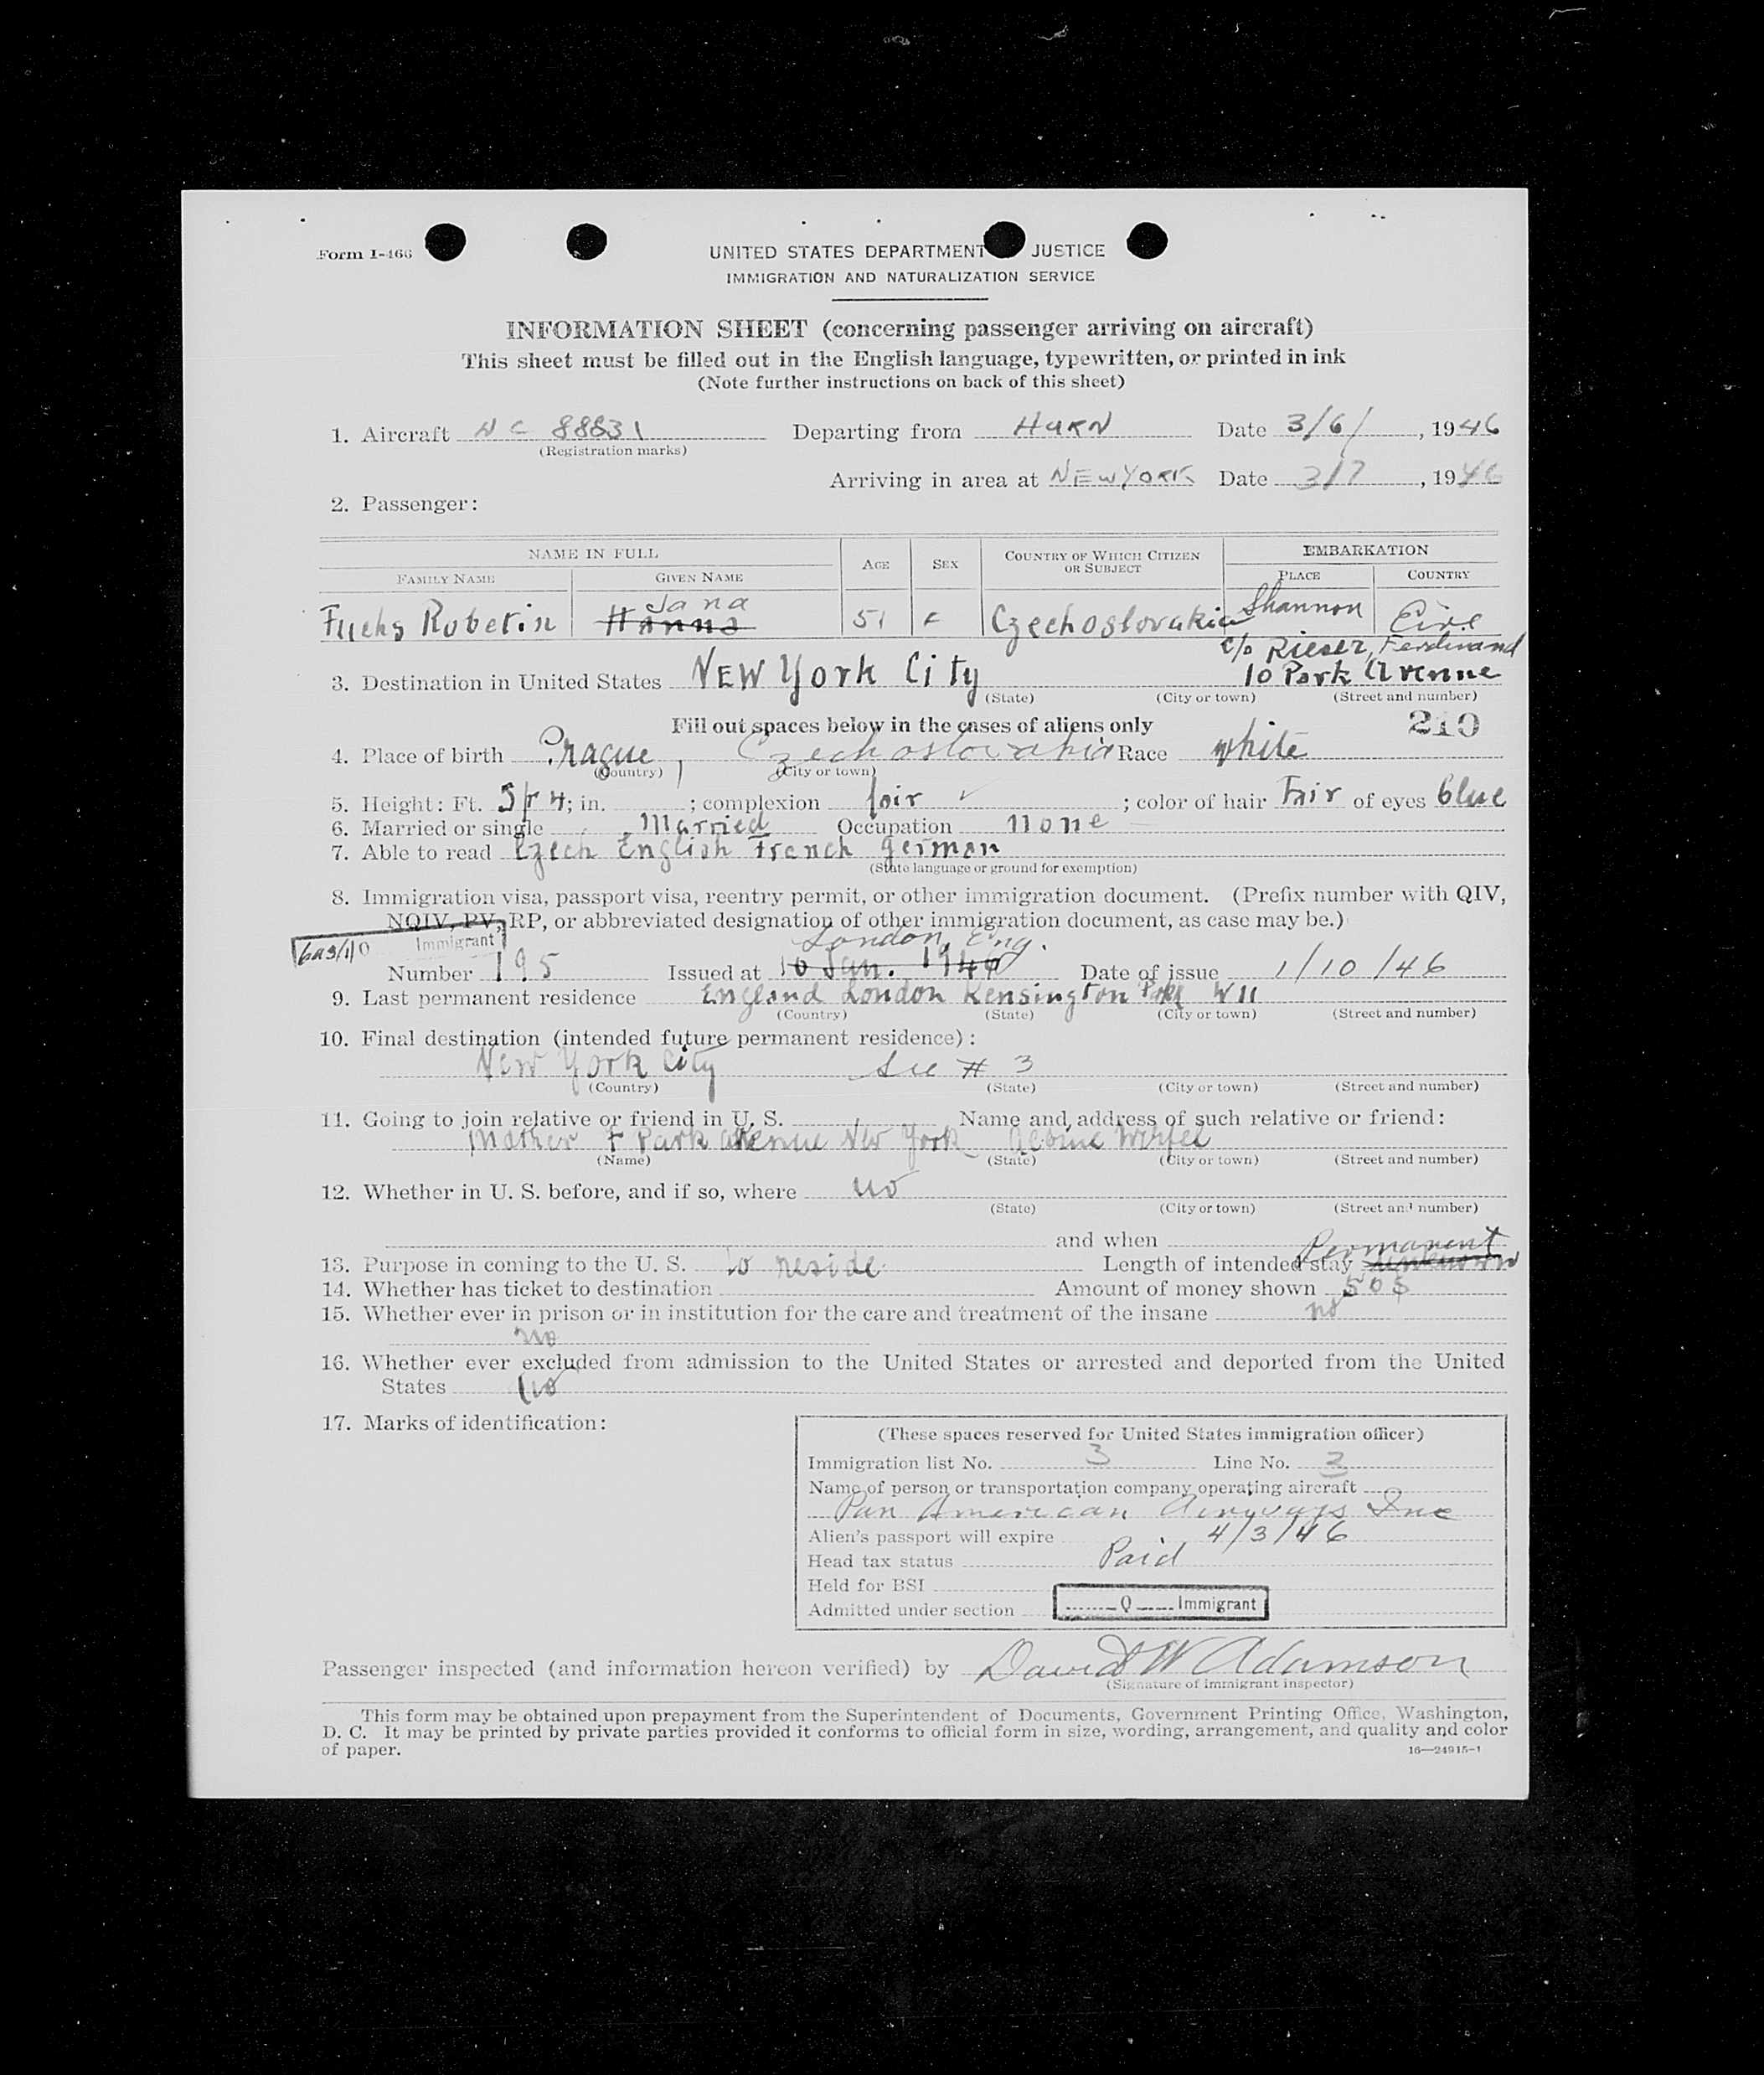 Form I-466
UNITED STATES DEPARTMENT JUSTICE
IMMIGRATION AND NATURALIZATION SERVICE
INFORMATION SHEET (concerning passenger arriving on aircraft)
This sheet must be filled out in the English language, typewritten, or printed in ink
(Note further instructions on back of this sheet)
1. Aircraft NC 88831 Departing from HURN Date 3/6/, 1946
(Registration marks)
Arriving in area at NEW YORK Date 3/7, 1946
2. Passenger:
NAME IN FULL
FAMILY NAME GIVEN NAME AGE SEX COUNTRY OF WHICH CITIZEN OR SUBJECT EMBARKATION
PLACE COUNTRY
Jana
Fuchs Robetin Hanna 51 F Czechoslovakia Shannon Eire
c/o Rieser, Ferdinand
3. Destination in United States NEW York City 10 Park Avenue
(State) (City or town) (Street and number)
Fill out spaces below in the cases of aliens only 210
4. Place of birth Prague, Czechoslovakia Race white
(Country) (City or town)
5. Height: Ft. 5 f 4; in. ; complexion fair ✓ ; color of hair Fair of eyes Blue
6. Married or single Married Occupation none
7. Able to read Czech English French German
(State language or ground for exemption)
8. Immigration visa, passport visa, reentry permit, or other immigration document. (Prefix number with QIV,
NQIV, PV, RP, or abbreviated designation of other immigration document, as case may be.)
Immigrant London, Eng.
Number 195 Issued at 10 Jan. 1946 Date of issue 1/10/46
9. Last permanent residence England London Kensington W11
(Country) (State) (City or town) (Street and number)
10. Final destination (intended future permanent residence):
New York City See # 3
(Country) (State) (City or town) (Street and number)
11. Going to join relative or friend in U. S. Name and address of such relative or friend:
Mother Park Avenue New York Albine Werfel
(Name) (State) (City or town) (Street and number)
12. Whether in U. S. before, and if so, where no
(State) (City or town) (Street and number)
and when
Permanent
13. Purpose in coming to the U. S. to reside Length of intended stay unknown
14. Whether has ticket to destination Amount of money shown 50$
15. Whether ever in prison or in institution for the care and treatment of the insane no
no
16. Whether ever excluded from admission to the United States or arrested and deported from the United
States no
17. Marks of identification:
(These spaces reserved for United States immigration officer)
Immigration list No. 3 Line No. 3
Name of person or transportation company operating aircraft
Pan American Airways Inc
Alien's passport will expire 4/3/46
Head tax status Paid
Held for BSI
Admitted under section Q Immigrant
Passenger inspected (and information hereon verified) by David W Adamson
(Signature of immigrant inspector)
This form may be obtained upon prepayment from the Superintendent of Documents, Government Printing Office, Washington,
D. C. It may be printed by private parties provided it conforms to official form in size, wording, arrangement, and quality and color
of paper.
16—24915-1